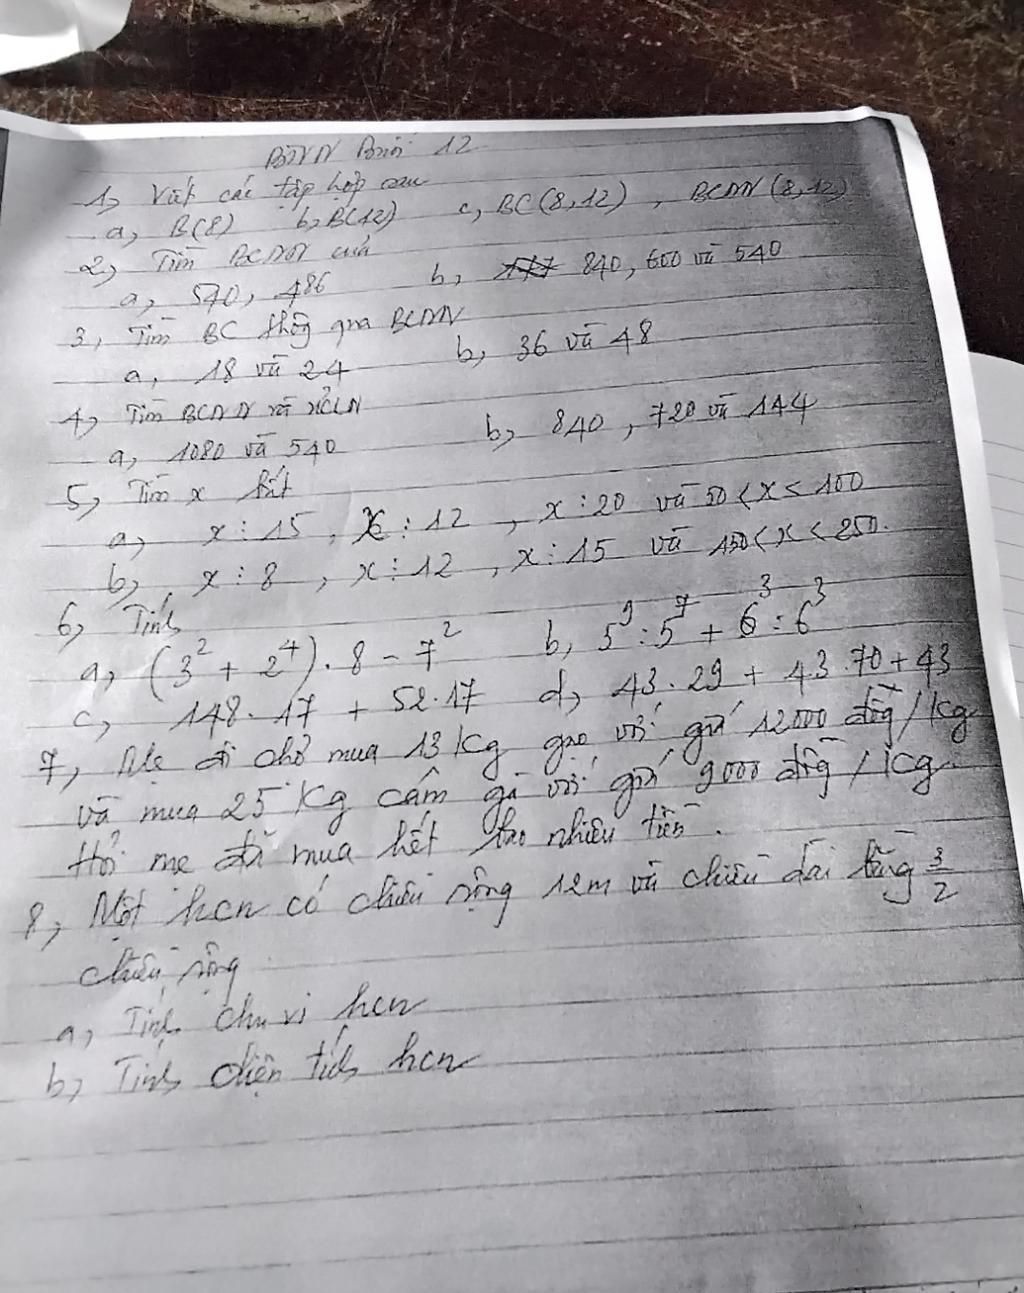 BTVN Buổi 12
1, Viết các tập hợp sau
a, B(8) b, B(12) c, BC(8,12), BCNN(8,12)
2, Tìm BCNN của
a, 570, 486 b, 840, 600 và 540
3, Tìm BC thông qua BCNN
a, 18 và 24 b, 36 và 48
4, Tìm BCNN và ƯCLN
a, 1080 và 540 b, 840, 720 và 144
5, Tìm x biết
a, x ⋮ 15, x ⋮ 12, x ⋮ 20 và 50 < x < 100
b, x ⋮ 8, x ⋮ 12, x ⋮ 15 và 150 < x < 250.
6, Tính
a, (3² + 2⁴) . 8 - 7² b, 5⁹ : 5⁷ + 6³ : 6³
c, 148 . 17 + 52 . 17 d, 43 . 29 + 43 . 70 + 43
7, Mẹ đi chợ mua 13 kg gạo với giá 12000 đồng/kg
và mua 25 kg cám gà với giá 9000 đồng/kg.
Hỏi mẹ đã mua hết bao nhiêu tiền.
8, Một hcn có chiều rộng 12m và chiều dài bằng 3/2
chiều rộng
a, Tính chu vi hcn
b, Tính diện tích hcn